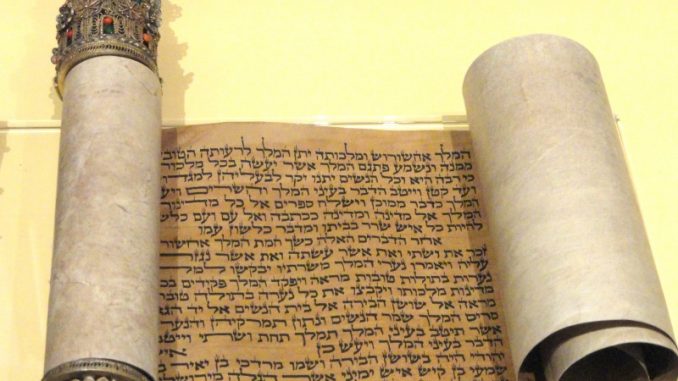 המלך אחשורוש ומלכותה יתן המלך לרעותה הטובה
ממנה ונשמע פתגם המלך אשר יעשה בכל מלכותו
רבה היא וכל הנשים יתנו יקר לבעליהן
ועד קטן וייטב הדבר בעיני המלך והשרים ויעש
המלך כדבר ממוכן וישלח ספרים אל כל מדינות
המלך אל מדינה ומדינה ככתבה ואל עם ועם
להיות כל איש שרר בביתו ומדבר כלשון עמו
אחר הדברים האלה כשך חמת המלך אחשורוש
זכר את ושתי ואת אשר עשתה ואת אשר נגזר
עליה ויאמרו נערי המלך משרתיו יבקשו למלך
נערות בתולות טובות מראה ויפקד המלך פקידים בכל
מדינות מלכותו ויקבצו את כל נערה בתולה טובת
מראה אל שושן הבירה אל בית הנשים אל
סריס המלך שמר הנשים ונתון תמרקיהן והנערה
אשר תיטב בעיני המלך תמלך תחת ושתי וייטב
הדבר בעיני המלך ויעש כן
איש
יהודי היה בשושן הבירה ושמו מרדכי בן יאיר
שמעי בן קיש איש ימיני אשר הגלה